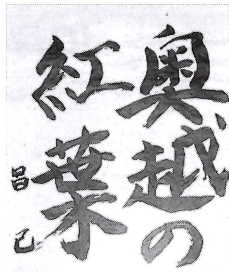 奥越の
紅葉
昌己